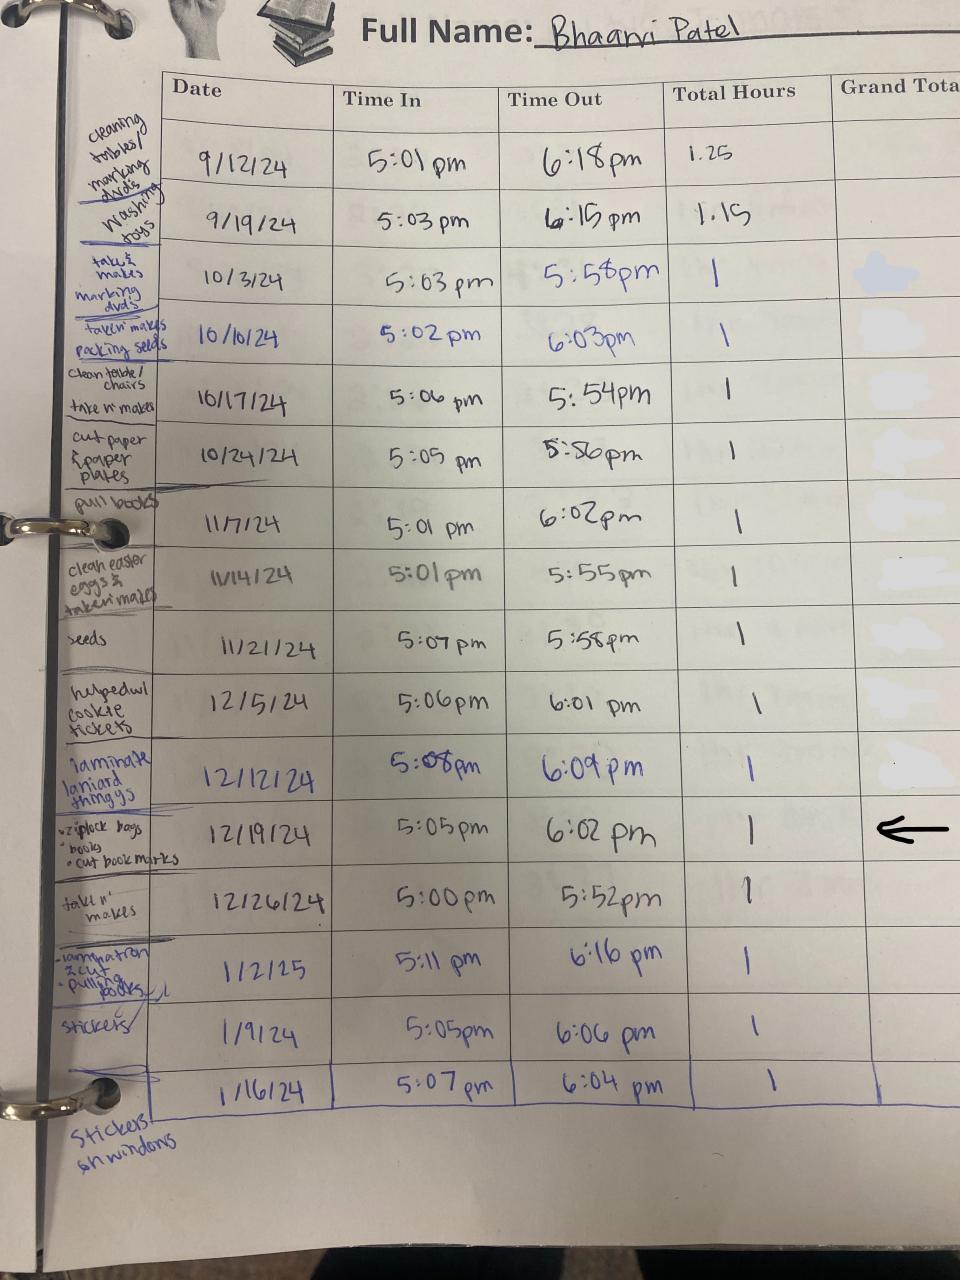 Full Name: Bhaanvi Patel
Date Time In Time Out Total Hours Grand Tota
cleaning
tables/
marking
dvds
9/12/24 5:01 pm 6:18pm 1.25
washing
toys
9/19/24 5:03 pm 6:15 pm 1.15
take &
makes
marking
dvds
10/3/24 5:03 pm 5:58pm 1
take n' makes
packing seeds
10/10/24 5:02 pm 6:03pm 1
clean table/
chairs
take n' makes
10/17/24 5:06 pm 5:54pm 1
cut paper
& paper
plates
10/24/24 5:05 pm 5:56pm 1
pull books
11/7/24 5:01 pm 6:02pm 1
clean easter
eggs &
take n' makes
11/14/24 5:01pm 5:55pm 1
seeds
11/21/24 5:07pm 5:58pm 1
helped w/
cookie
tickets
12/5/24 5:06pm 6:01 pm 1
laminate
laniard
thingys
12/12/24 5:08pm 6:09pm 1
• ziplock bags
• books
• cut bookmarks
12/19/24 5:05pm 6:02 pm 1
take n'
makes
12/26/24 5:00pm 5:52pm 1
& cut
• pulling
books
1/2/25 5:11 pm 6:16 pm 1
stickers
1/9/24 5:05pm 6:06 pm 1
1/16/24 5:07 pm 6:04 pm 1
stickers
on windows